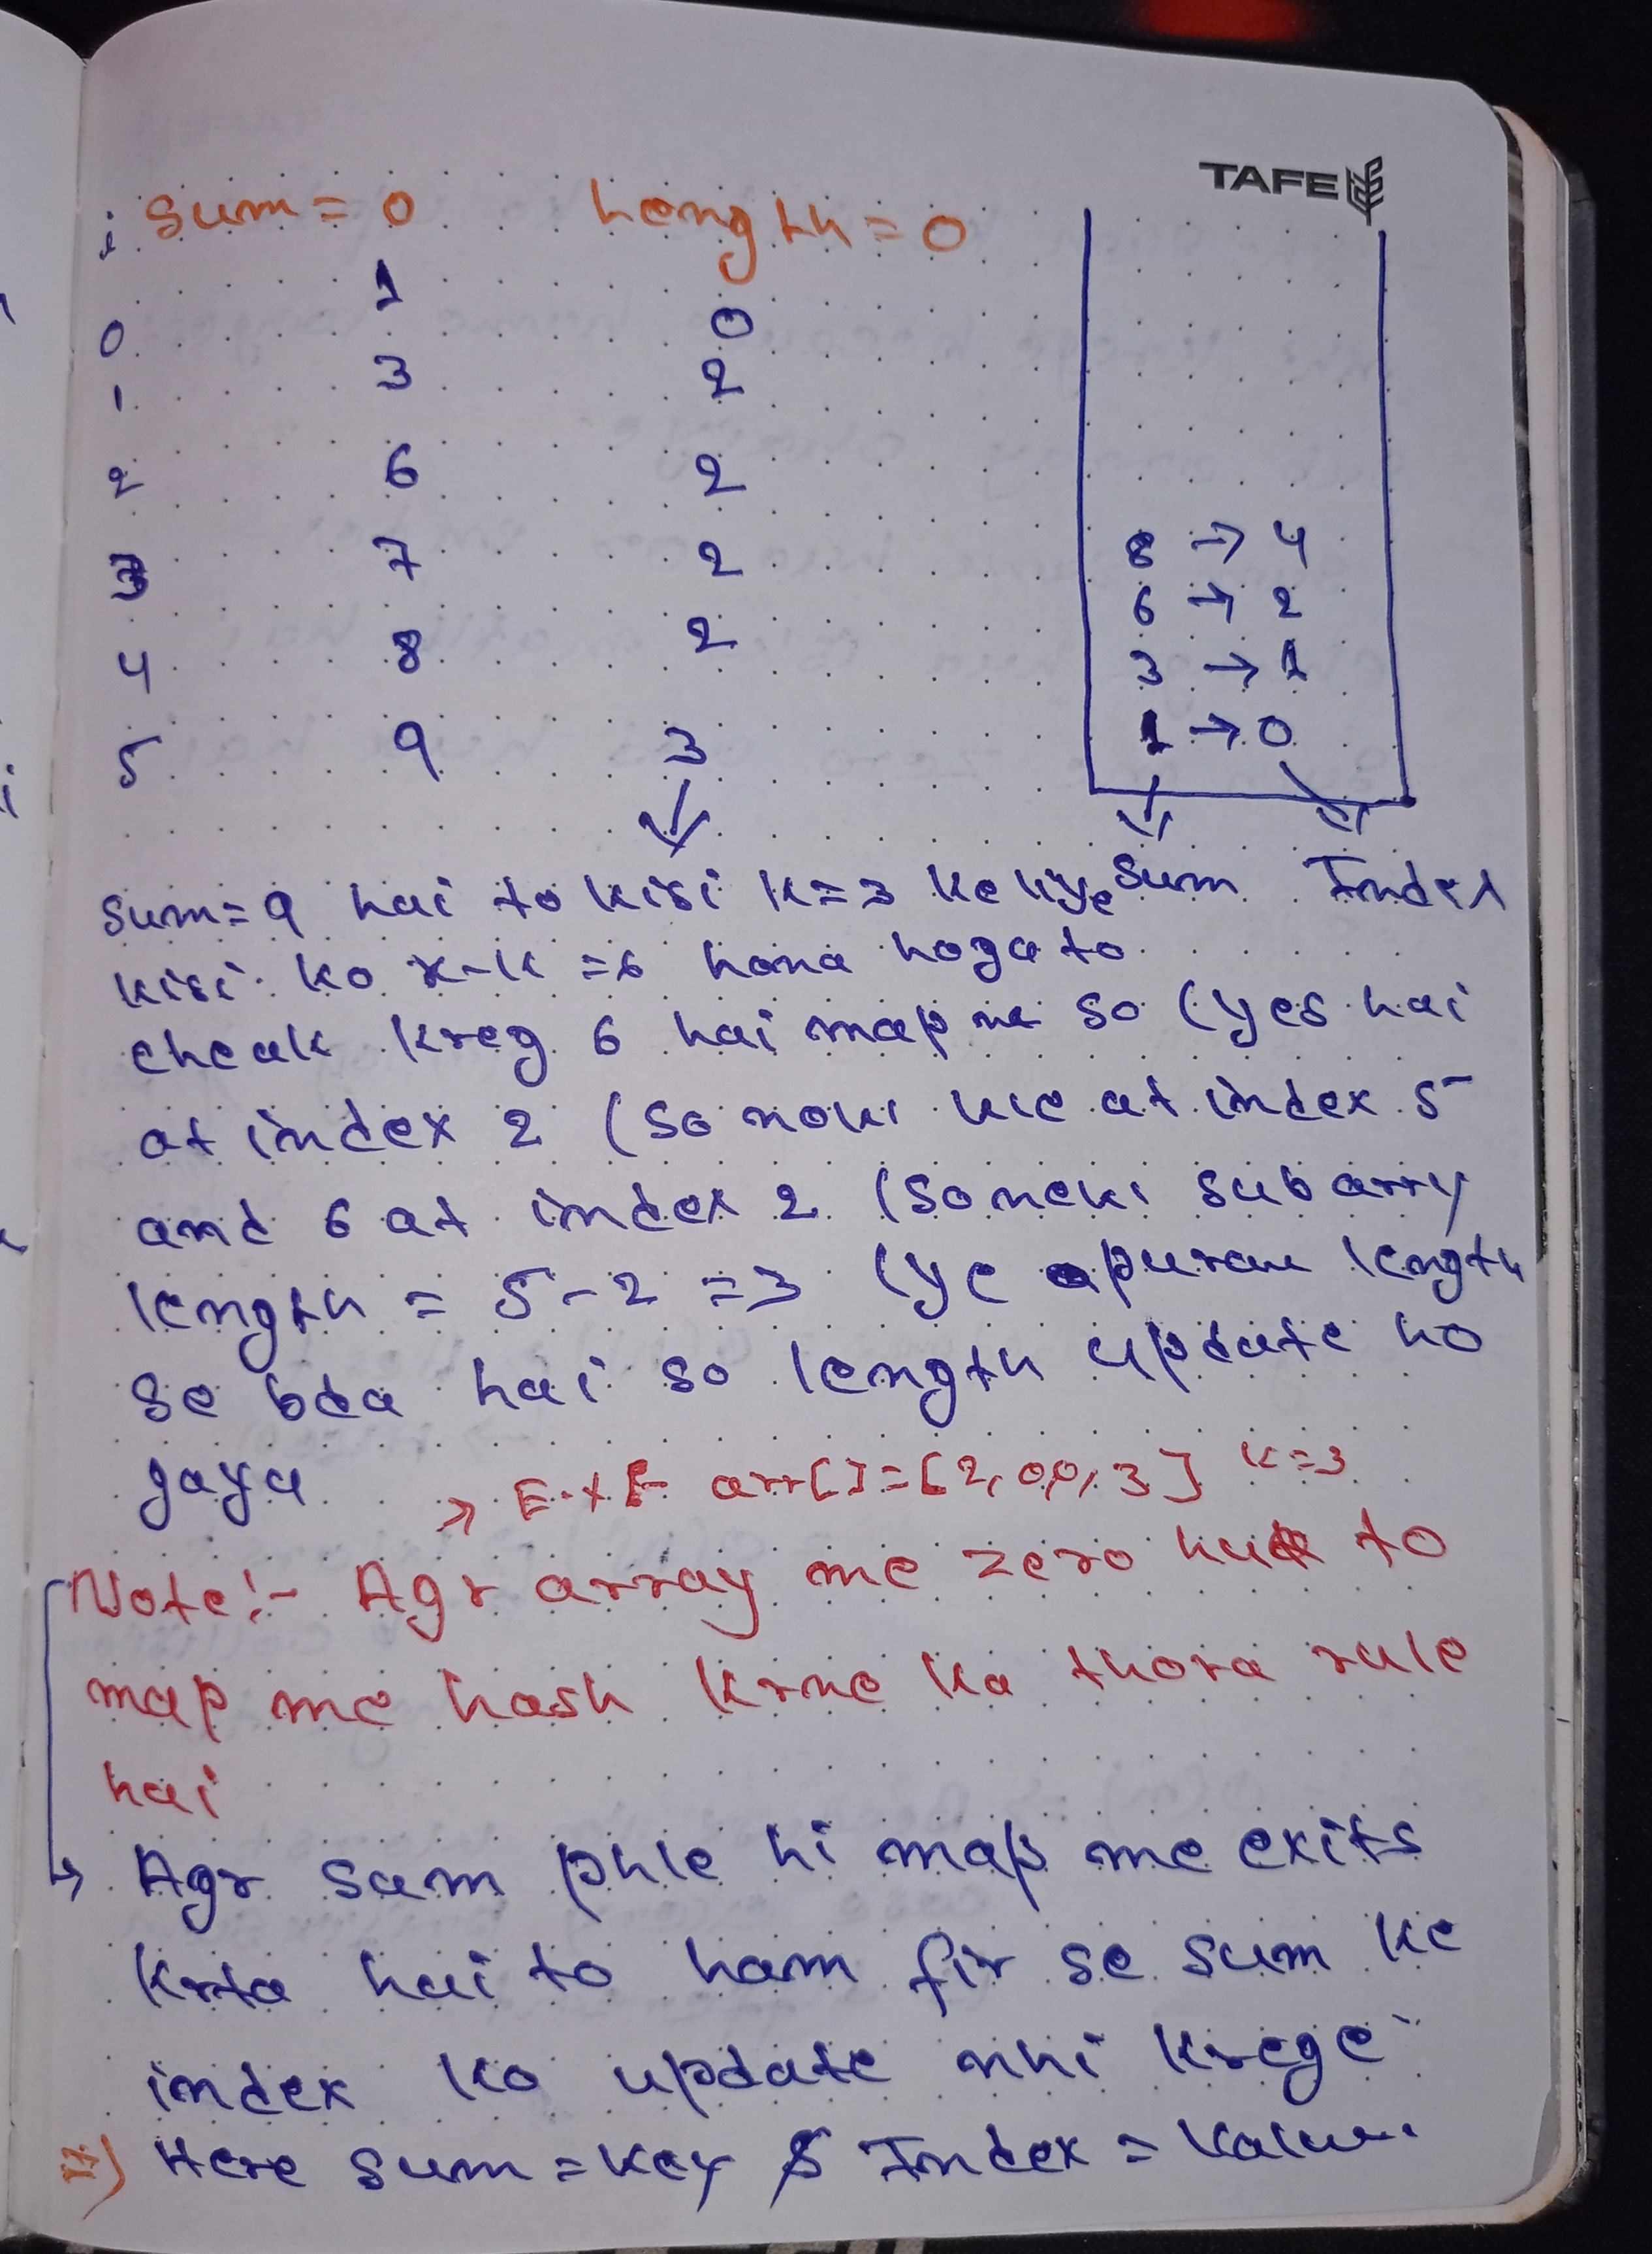 TAFE
i sum = 0 length = 0
1
0 0
1 3 2
2 6 2
3 7 2
4 8 2
5 9 3
8 → 4
6 → 2
3 → 1
1 → 0
Sum Index
sum=9 hai to kisi k=3 ke liye
kisi ko x-k =6 hona hoga to
cheak kreg 6 hai map me so (yes hai
at index 2 (so now we at index 5
and 6 at index 2 (so subarry
length = 5-2 =3 (ye length
se bda hai so length update ho
jaya
→ Ex arr[]=[2,0,0,3] k=3
Note:- Agr array me zero hua to
map me hash krne ka thora rule
hai
→ Agr sum phle hi map me exits
krta hai to ham fir se sum ke
index ko update nhi krege
⇒) Here sum = key & Index = Value.